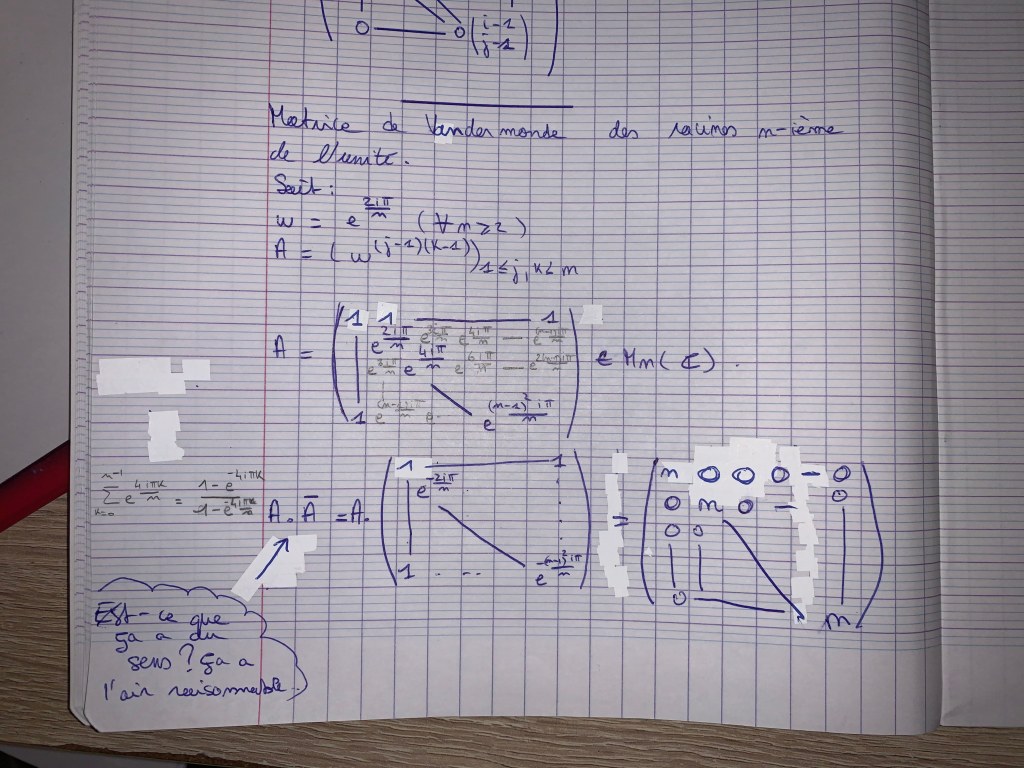 0 — 0 (i-1 j-1)
Matrice de Vandermonde des racines n-ième
de l'unité.
Soit:
w = e^(2iπ/n) (∀n≥2)
A = (w^(j-1)(k-1))_1≤j,k≤n
A = (1 1 — 1
e^(2iπ/n) e^(4iπ/n) — e
e e^(4iπ/n) e^(6iπ/n) — e
1 e e e^((n-1)²iπ/n)) ∈ Mn(ℂ).
∑_(k=0)^(n-1) e^(4iπk/n) = (1-e^(-4iπk))/(1-e^(-4iπk/n))
A.Ā = A. (1 — 1
e^(-2iπ/n)
1 . -- e^(-(n-1)²iπ/n)) = (n 0 0 0 - 0
0 n 0 - 0
0 0
0 — n)
Est-ce que
ça a du
sens ? ça a
l'air raisonnable.